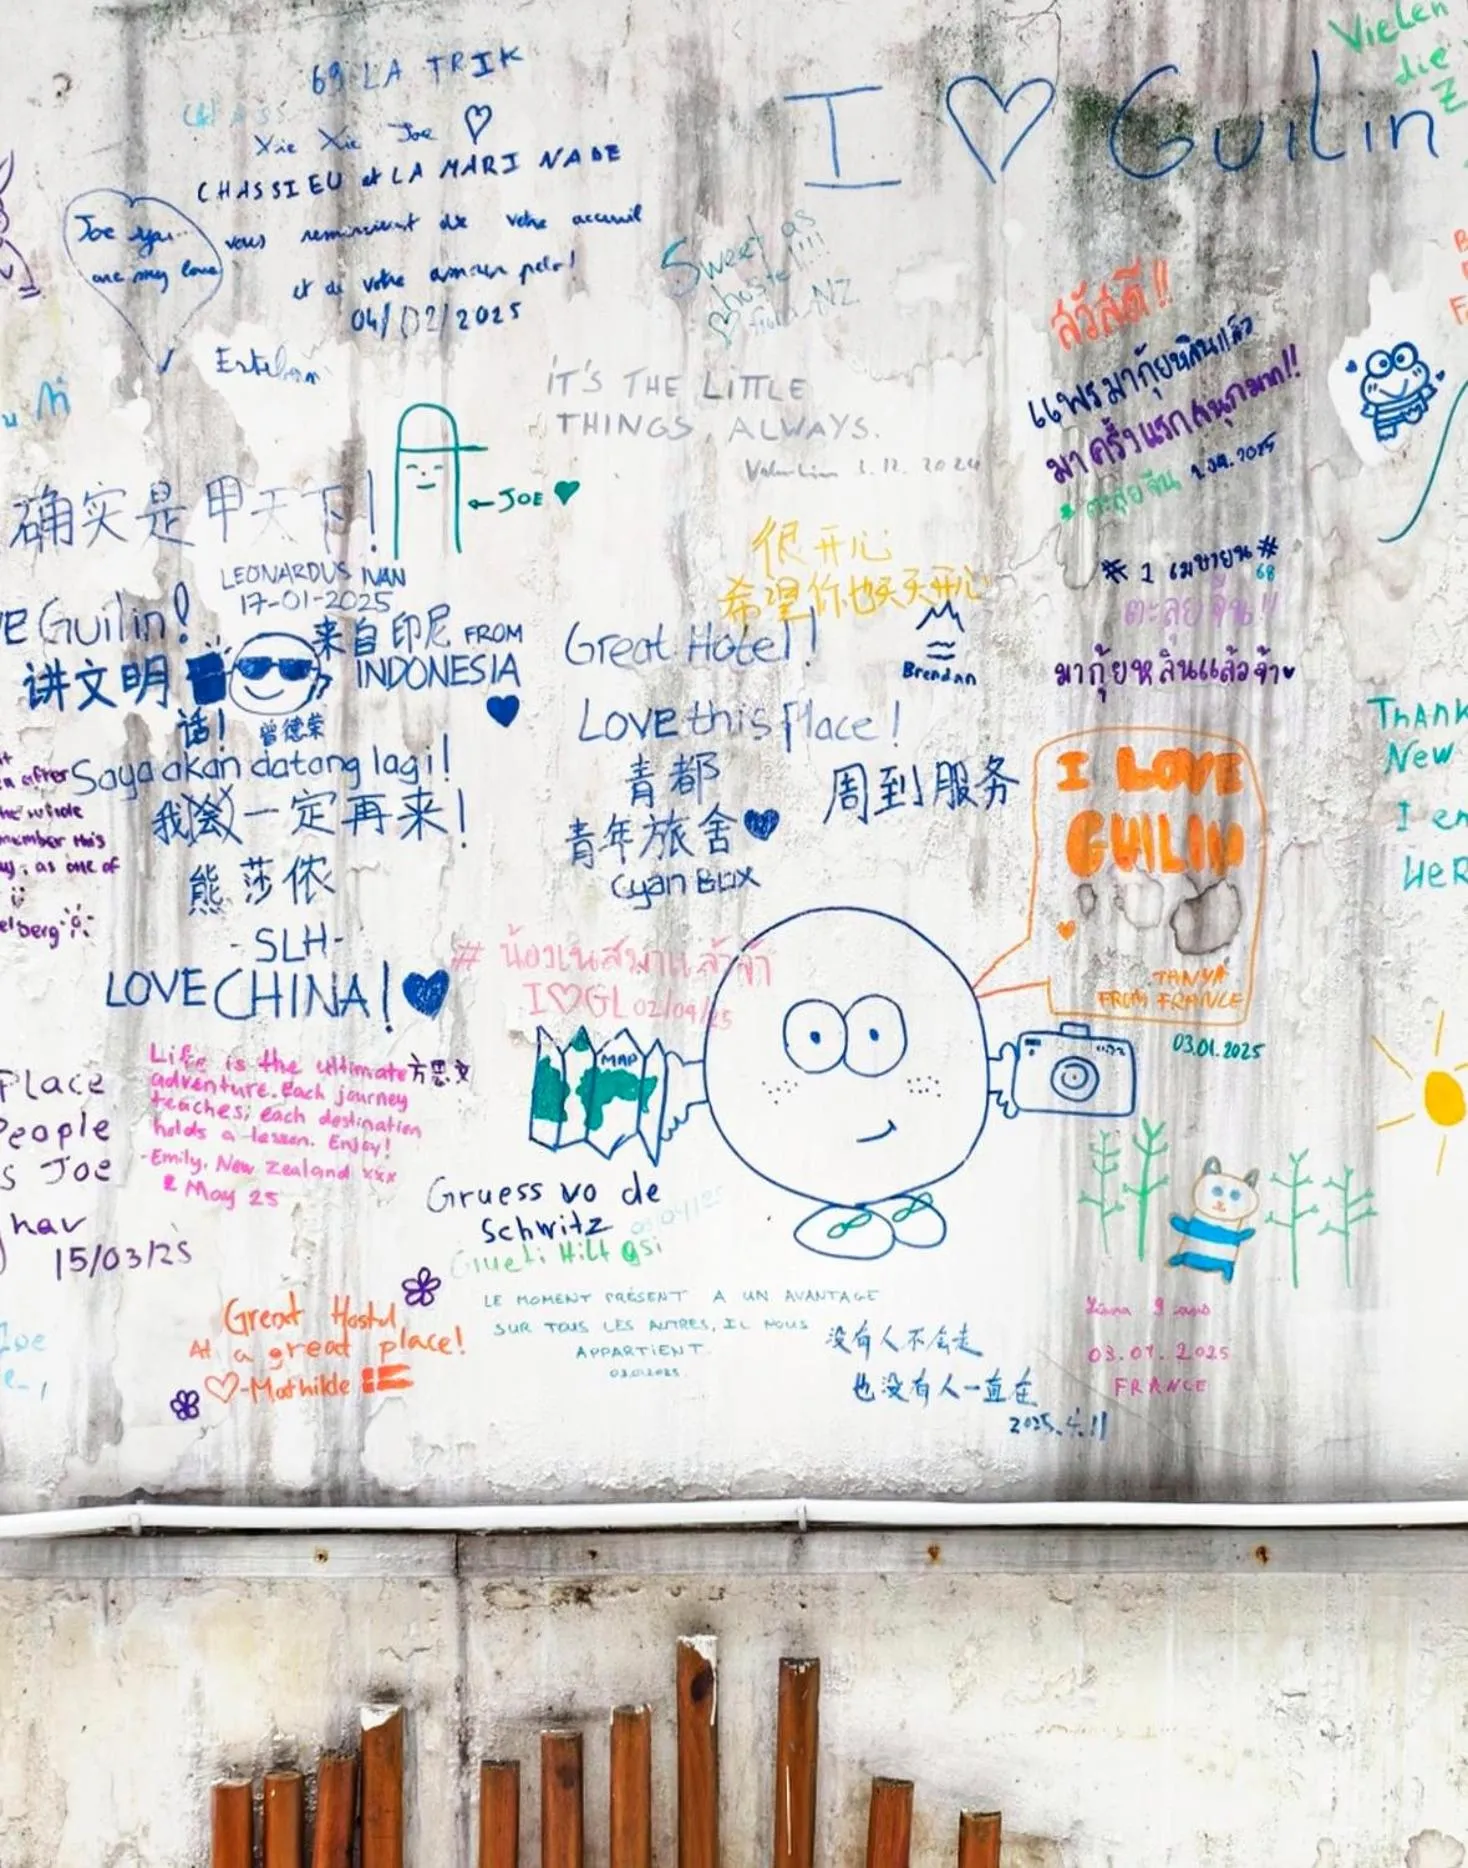 69 LA TRIK
Xie Xie Joe
CHASSIEU et LA MARI NADE
vous remercient de votre accueil
et de votre
04/02/2025
Joe you
are my love
I ♡ Guilin
Vielen
die
Z
Sweet as
hostel!!!!
NZ
IT'S THE LITTLE
THINGS, ALWAYS.
1.12.2024
สวัสดี!!
แพรมากุ้ยหลินแล้ว
มาครั้งแรกสนุกมาก!!
ตะลุยจีน
2025
# 1 เมษายน #
68
ตะลุยจีน!!
มากุ้ยหลินแล้วจ้า
确实是甲天下!
← JOE
LEONARDUS IVAN
17-01-2025
很开心
希望你也天天开心
VE Guilin!
讲文明
话!
曾德荣
来自印尼 FROM
INDONESIA
Great Hotel!
Brendan
Love this Place!
青都
青年旅舍
Cyan Box
周到服务
Saya akan datang lagi!
我一定再来!
熊莎侬
-SLH-
LOVE CHINA!
after
whole
member this
as one of
I LOVE
GUILIN
TANYA
FROM FRANCE
03.01.2025
THANK
New
I
HeR
# น้องเนสมาแล้วจ้า
I♡GL 02/04/25
MAP
Life is the ultimate
adventure. Each journey
teaches; each destination
holds a lesson. Enjoy!
-Emily, New Zealand xxx
2 May 25
方思文
Place
People
s Joe
hav
15/03/25
Gruess vo de
Schwitz
Great Hostel
At a great place!
♡-Mathilde
LE MOMENT PRÉSENT A UN AVANTAGE
SUR TOUS LES AUTRES, IL NOUS
APPARTIENT.
03.01.2025
没有人不会走
也没有人一直在
2025.4.11
9 ans
03.01.2025
FRANCE